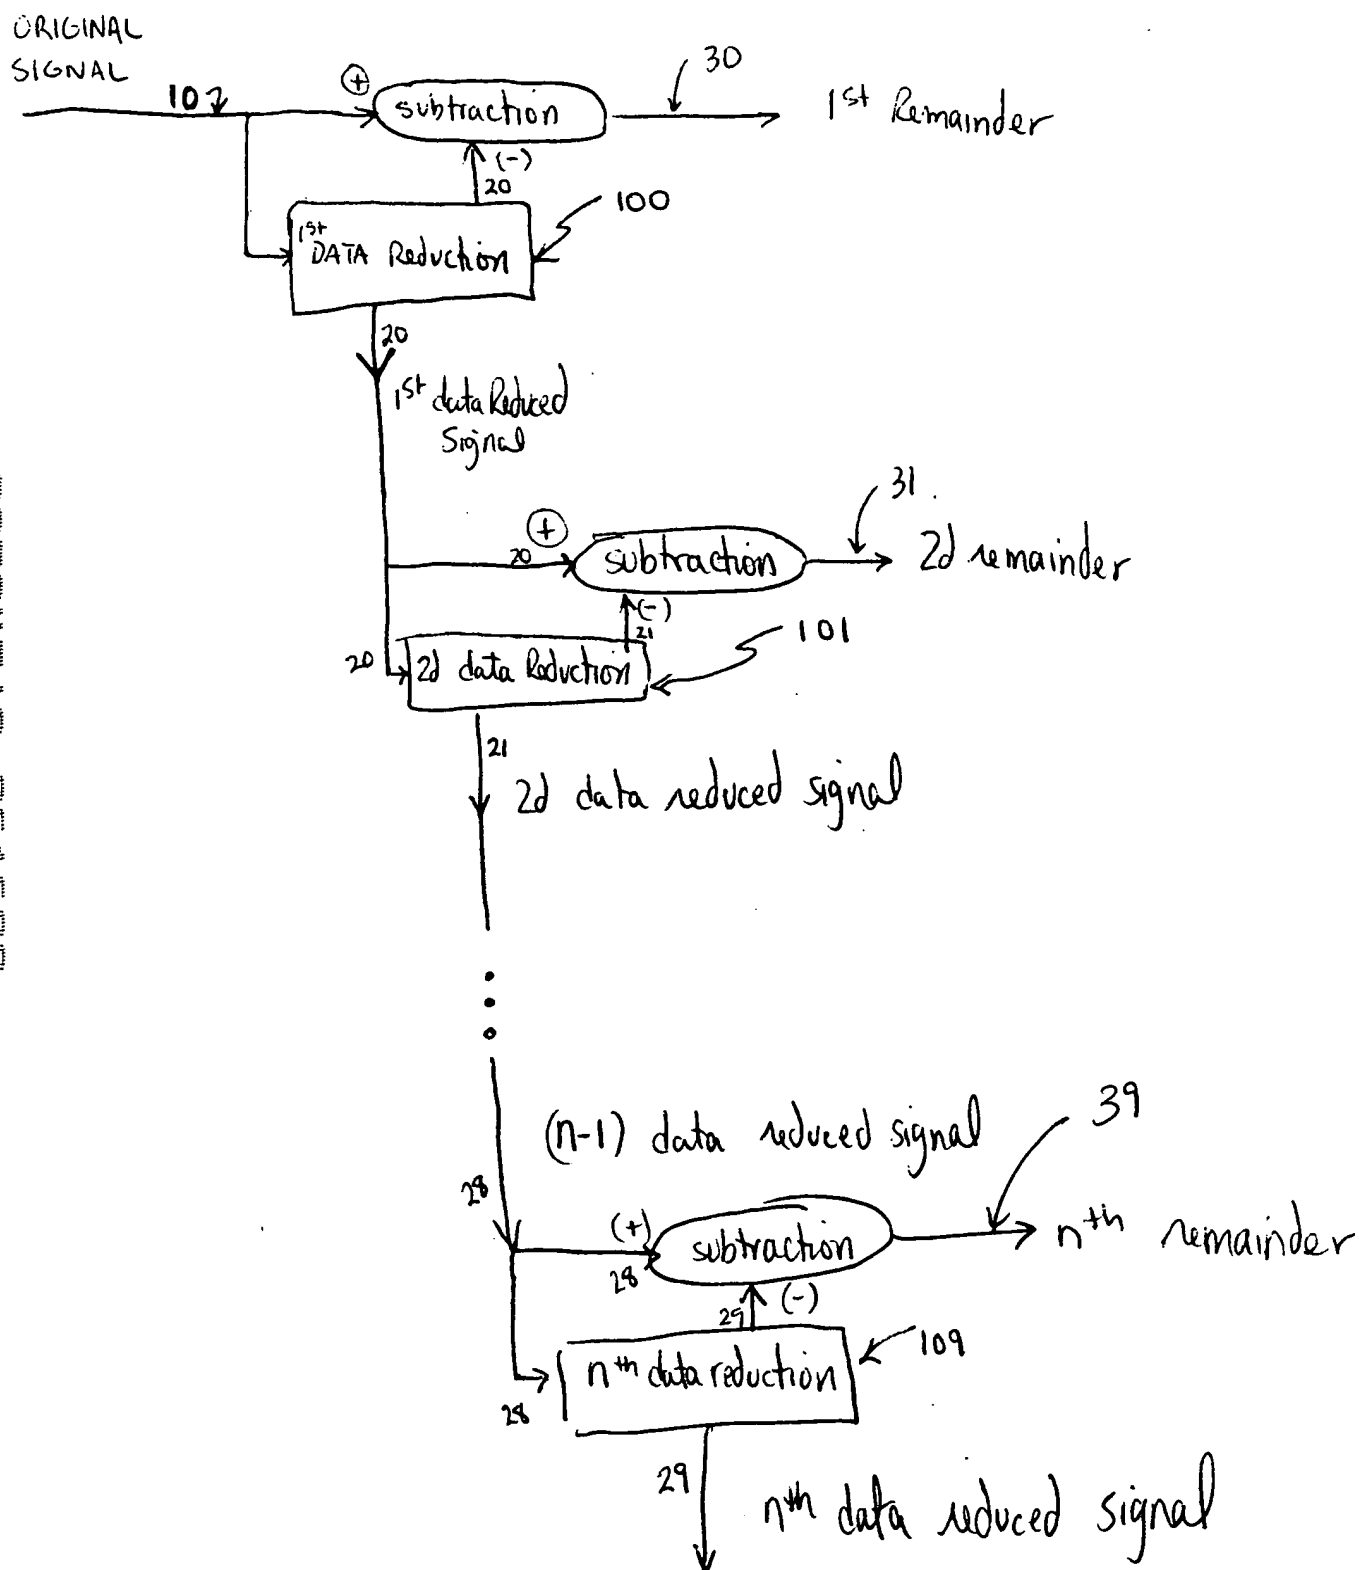 ORIGINAL
SIGNAL
10
+
subtraction
30
1st Remainder
(-)
20
100
1st
DATA Reduction
20
1st data Reduced
Signal
31
+
20
subtraction
2d remainder
(-)
21
101
20
2d data Reduction
21
2d data reduced signal
(n-1) data reduced signal
39
28
(+)
28
subtraction
nth remainder
29
(-)
109
nth data reduction
28
29
nth data reduced signal